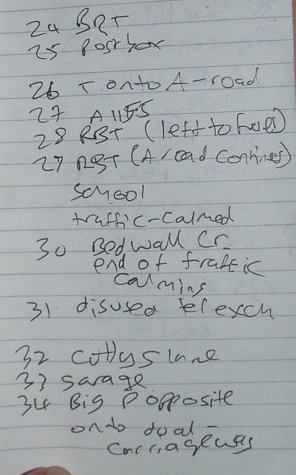 24 BRT
25 Post box
26 T onto A-road
27
28 RBT (left to
29 RBT (A road continues)
school
traffic-calmed
30 Bedwall Cr
end of traffic
calming
31 disused tel exch
32 Cottys lane
33 garage
34 Big P opposite
onto dual-
carriageway